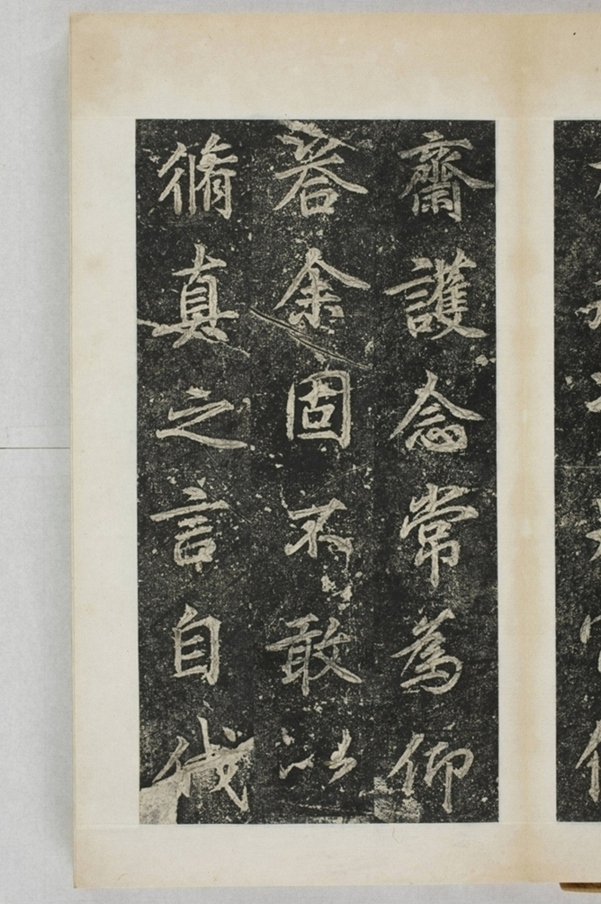 齋護念常為仰
荅余固不敢以
脩真之言自伐